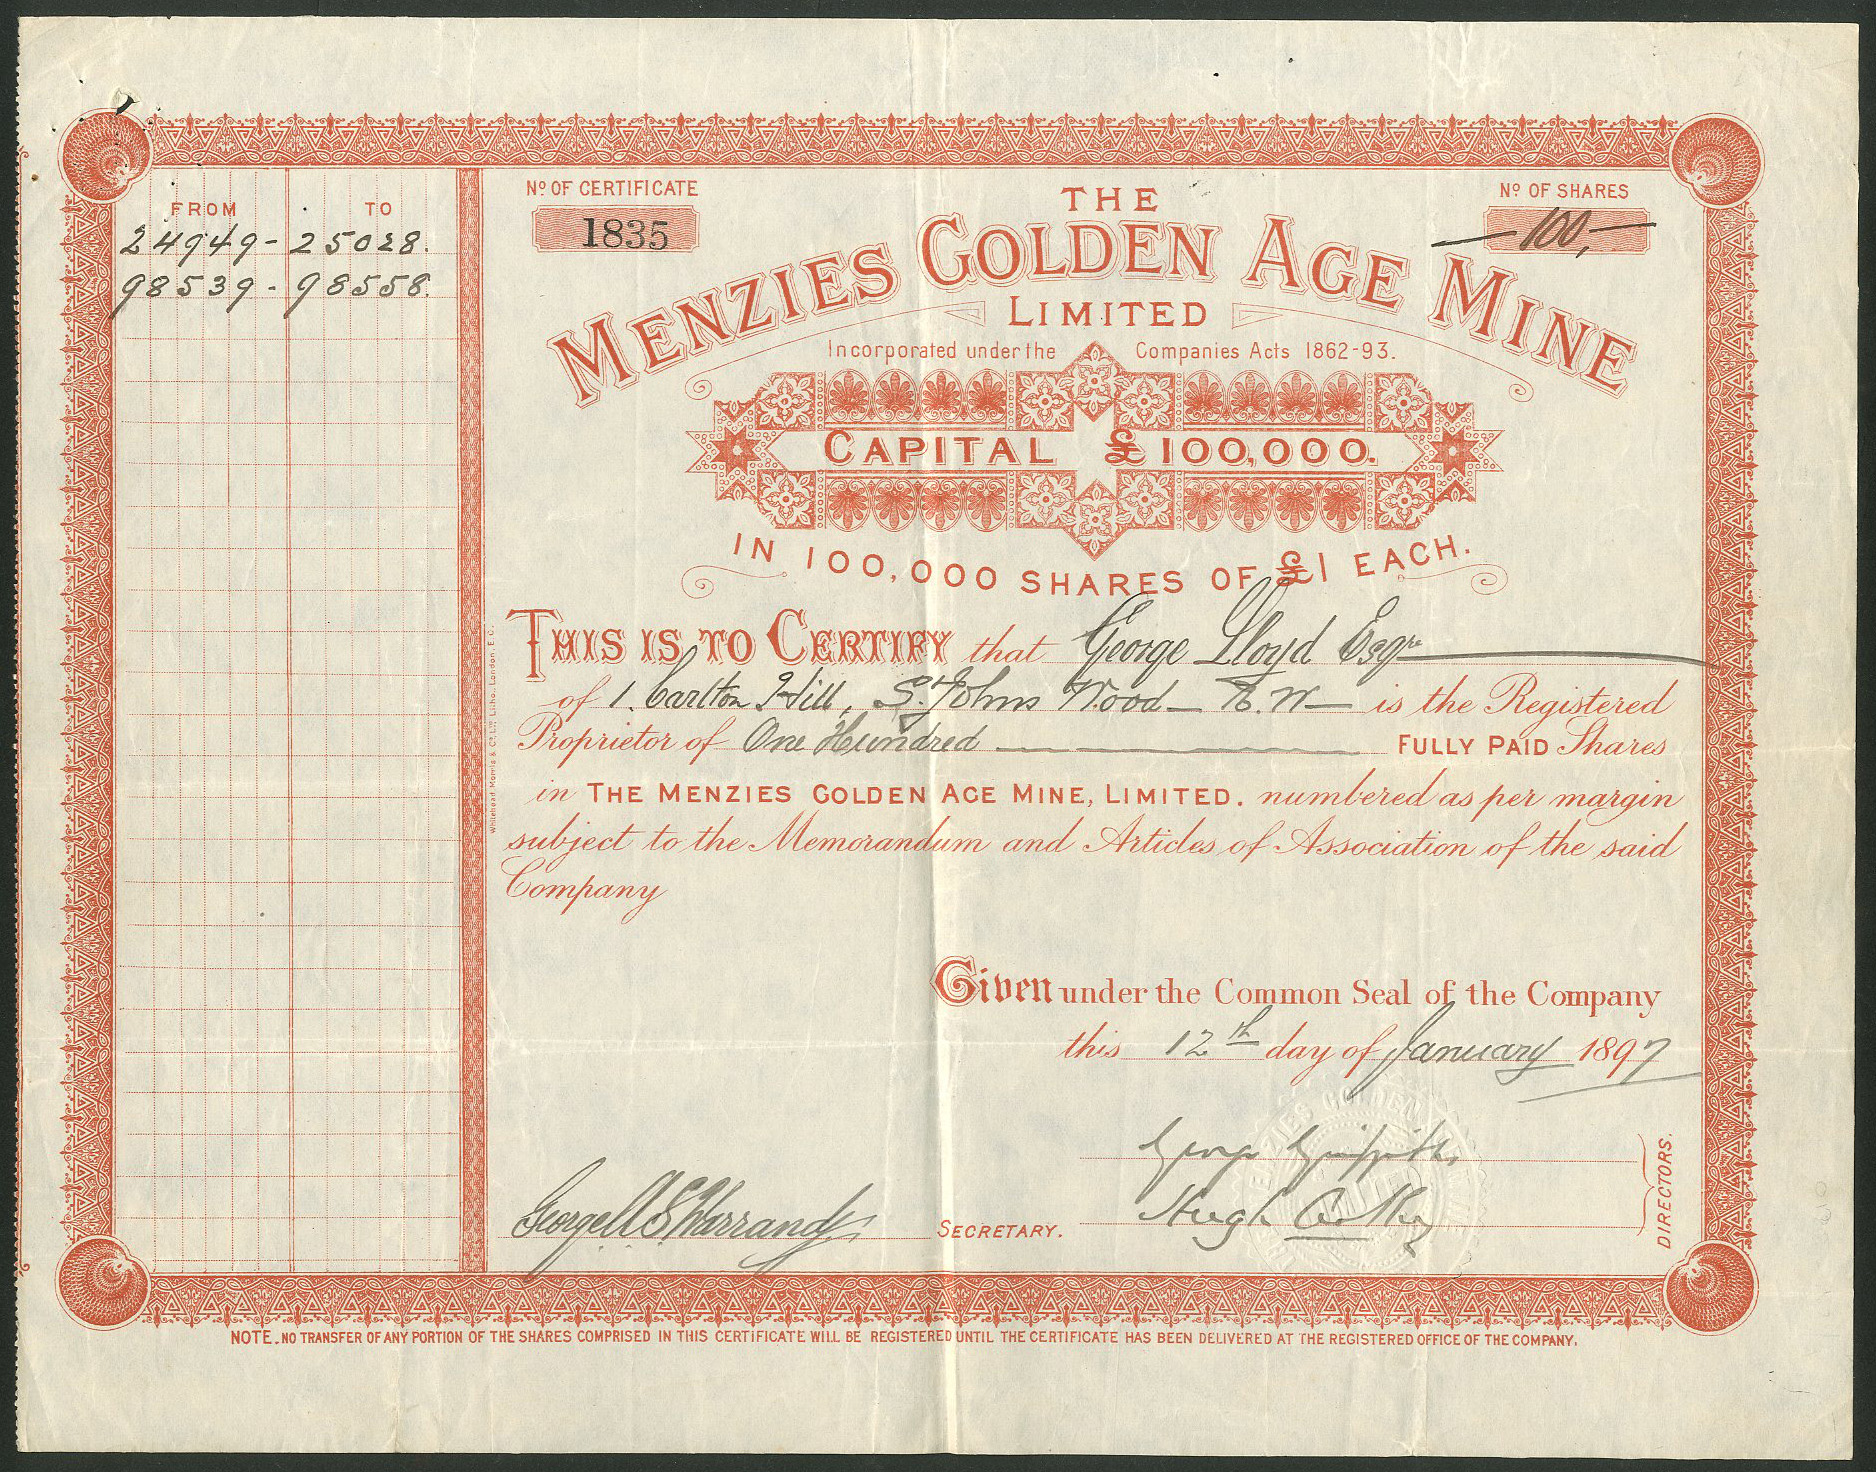 FROM TO
24949 - 25028.
98539 - 98558.
No OF CERTIFICATE
1835
No OF SHARES
100,
THE
MENZIES GOLDEN AGE MINE
LIMITED
Incorporated under the Companies Acts 1862-93.
CAPITAL £100,000.
IN 100,000 SHARES OF £1 EACH.
THIS IS TO CERTIFY that George Lloyd Esqre
of 1. Carlton Hill, St. Johns Wood N.W. is the Registered
Proprietor of One Hundred FULLY PAID Shares
in THE MENZIES GOLDEN AGE MINE, LIMITED. numbered as per margin
subject to the Memorandum and Articles of Association of the said
Company
Given under the Common Seal of the Company
this 12th day of January 1897
MENZIES GOLDEN
George Griffiths
Hugh
DIRECTORS.
George A S Warrand
SECRETARY.
Whitehead, Morris & Co. Ltd. Litho. London, E.C.
NOTE. NO TRANSFER OF ANY PORTION OF THE SHARES COMPRISED IN THIS CERTIFICATE WILL BE REGISTERED UNTIL THE CERTIFICATE HAS BEEN DELIVERED AT THE REGISTERED OFFICE OF THE COMPANY.